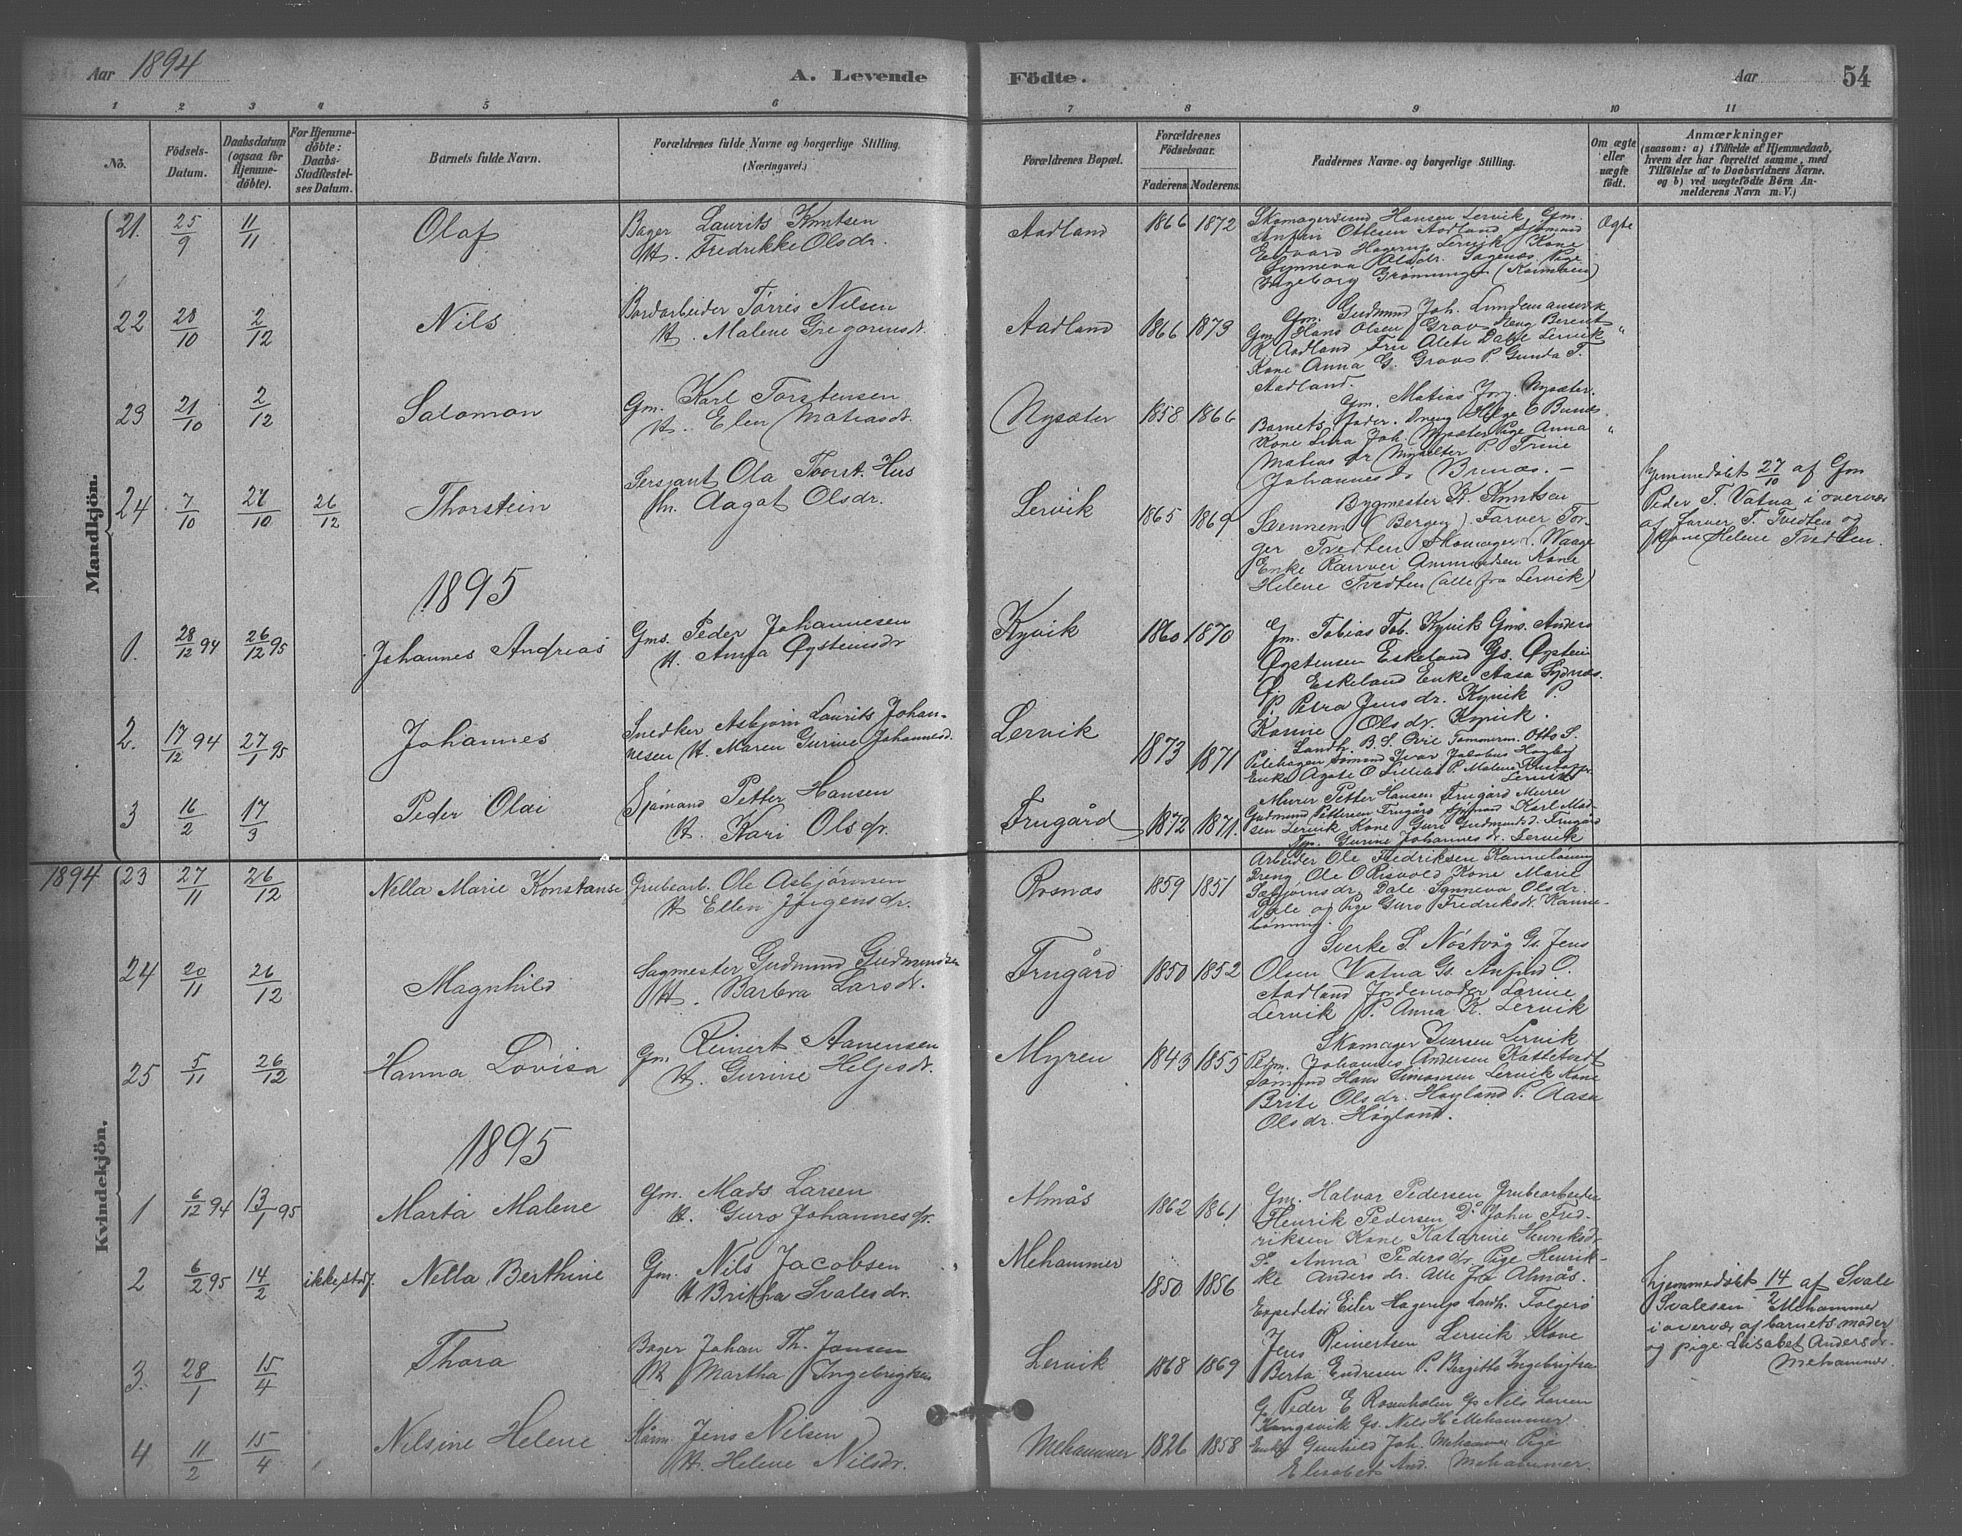 Aar 1894
A. Levende
Födte.
Aar
54
1 2 3 4 5 6 7 8 9 10 11
No.
Födsels-Datum.
Daabsdatum (ogsaa for Hjemme-döbte).
For Hjemme-döbte: Daabs-Stadfæstel-ses Datum.
Barnets fulde Navn.
Forældrenes fulde Navne og borgerlige Stilling. (Næringsvei.)
Forældrenes Bopæl.
Forældrenes Födselsaar.
Faderens Moderens
Faddernes Navne og borgerlige Stilling.
Om ægte eller uægte födt.
Anmærkninger
(saasom: a) i Tilfælde af Hjemmedaab,
hvem der har forrettet samme, med
Tilföielse af to Daabsvidners Navne.
og b) ved uægtefödte Börn An-
melderens Navn m. V.)
Mandkjön.
21. 25/9 11/11 Olaf
Bager Laurits Knutsen
H. Fredrikke Olsdr.
Aadland 1866 1872
Hansen Lervik Gm.
Ottesen Aadland Sjömand
Edvard Hagerup Lervik Kone
Synneva Olsdr. Sagenæs Pige
Ingeborg Grönninger
Ægte
22 20/10 2/12 Nils
Bordarbeider Törris Nilsen
H. Malene Gregoriusdr.
Aadland 1866 1873
Gm. Gudmund Joh. Lundemansverk
Gm. Hans Olsen Grov Berent
K. Aadland Fru Alete Dahl Lervik
Kone Anna G. Grovs P. Gunda T.
Aadland.
"
23 21/10 2/12 Salomon
Gm. Karl Torstensen
H. Elen Matiasdr.
Nysæter 1858 1866
Gm. Matias Jorg. Nysæter.
Barnets Fader. Dreng Helge E Bunes
Kone Sina Joh. Nysæter Pige Anna
Matias dr Nysæter P. Trine
Johannesdr Bunæs. –
"
24 7/10 27/10 26/12 Thorstein
Sersjant Ola Thorst. Hus
H. Aagot Olsdr.
Lervik 1865 1869
Bygmester K. Knutsen
Svennem (Bergen). Farver Tor-
ger Tvedten Skomager L. Waage
Enke Amundsen Kone
Helene Tvedten (alle fra Lervik)
hjemmedöbt 27/10 af Gm
Peder T. Vatna i overvær
af farver T. Tvedten og
kone Helene Tvedten.
1895
1. 28/12 94 26/12 95 Johannes Andreas
Gms. Peder Johannesen
H. Anna Øysteinsdr
Kyvik 1860 1870
Gm. Tobias Tob. Kyvik Gms. Anders
Øystensen Eskeland Gs. Øystein
Ø. Eskeland Enke Aasa Sydnæs.
P. Petra Jensdr. Kyvik P.
Olsdr. Kyvik.
2. 17/12 94 27/1 95 Johannes
Snedker Asbjörn Laurits Johan-
nesen H. Maren Gurine Johannesd.
Lervik 1873 1871
Landh. B. S. Tömmerm. Otto S.
Pilehagen Sömand Ivar Jakobus
Enke Agate O P. Malene
Lervik
3 16/2 17/3 Peder Olai
Sjömand Petter Hansen
H. Kari Olsdr.
Frugård 1872 1871.
Murer Petter Hansen Frugård Murer
Gudmund Pettersen Frugård Sjömand Karl Mad-
sen Lervik Kone Guri Gudmundsd. Frugård
Gurine Johannesdr. Lervik
Kvindekjön.
1894 23 27/11 26/12 Nella Marie Konstanse
Grubearb. Ole Asbjörnsen
H Ellen Jörgensdr.
Rosnæs 1859 1851
Arbeider Ole Fredriksen Kannelönning
Dreng Ole O Risvold Kone Marie
Dale Synneva Olsdr.
Dale og Pige Guro Fredriksdr. Kanne-
lönning.
24 20/11 26/12 Magnhild
Sagmester Gudmund Gudmundsen
H. Barbra Larsdr.
Frugård 1850 1852
Sverke S. Nöstvåg Gs. Jens
Olsen Vatna Gs. Anfind O.
Aadland Jordemoder Larine
Lervik P. Anna K. Lervik
25 5/11 26/12 Hanna Lovisa
Gm. Reinert Aanensen
H. Gurine Heljesdr.
Myren 1843 1855
Skomager Iversen Lervik
Johannes Andersen Kattetvedt
Sömand Hans Simonsen Lervik Kone
Brite Olsdr. Høyland P. Aasa
Olsdr. Høyland.
1895
1 6/12 94 13/1 95 Marta Malene
Gm. Mads Larsen
H. Guro Johannesdr.
Almås 1862 1861
Gm. Halvar Pedersen Grubearbeider
Henrik Pedersen Do John Fred-
riksen Kone Katarine Henriksdr
S. Anna Pedersdr Pige Henrik-
ke Andersdr. Alle fra Almås.
2 6/2 95 14/2 ikke stadf. Nella Berthine
Gm. Nils Jacobsen
H Britha Svalesdr.
Mehammer 1850 1856
Expeditör Eiler Hagerup Landh. Folgerø
Jens Reinertsen Lervik Kone
hjemmedöbt 14/2 af Svale
Svalesen Mehammer
i overvær af barnets moder
og pige Elisabet Andersdr.
Mehammer.
3. 28/1 15/4 Thora
Bager Johan Th. Jansen
H Martha Ingebrigtsen
Lervik 1868 1869
Berta Endresen P. Birgitte Ingebrigtsen
4 11/2 15/4 Nilsine Helene
Jens Nilsen
H. Helene Nilsdr.
Mehammer 1826 1858
G. Peder E Rosenholm Gs Nils Larsen
Kongsvik Gs. Nils H Mehammer
Enke Gunhild Joh. Mehammer Pige
Elisabet And. Mehammer.